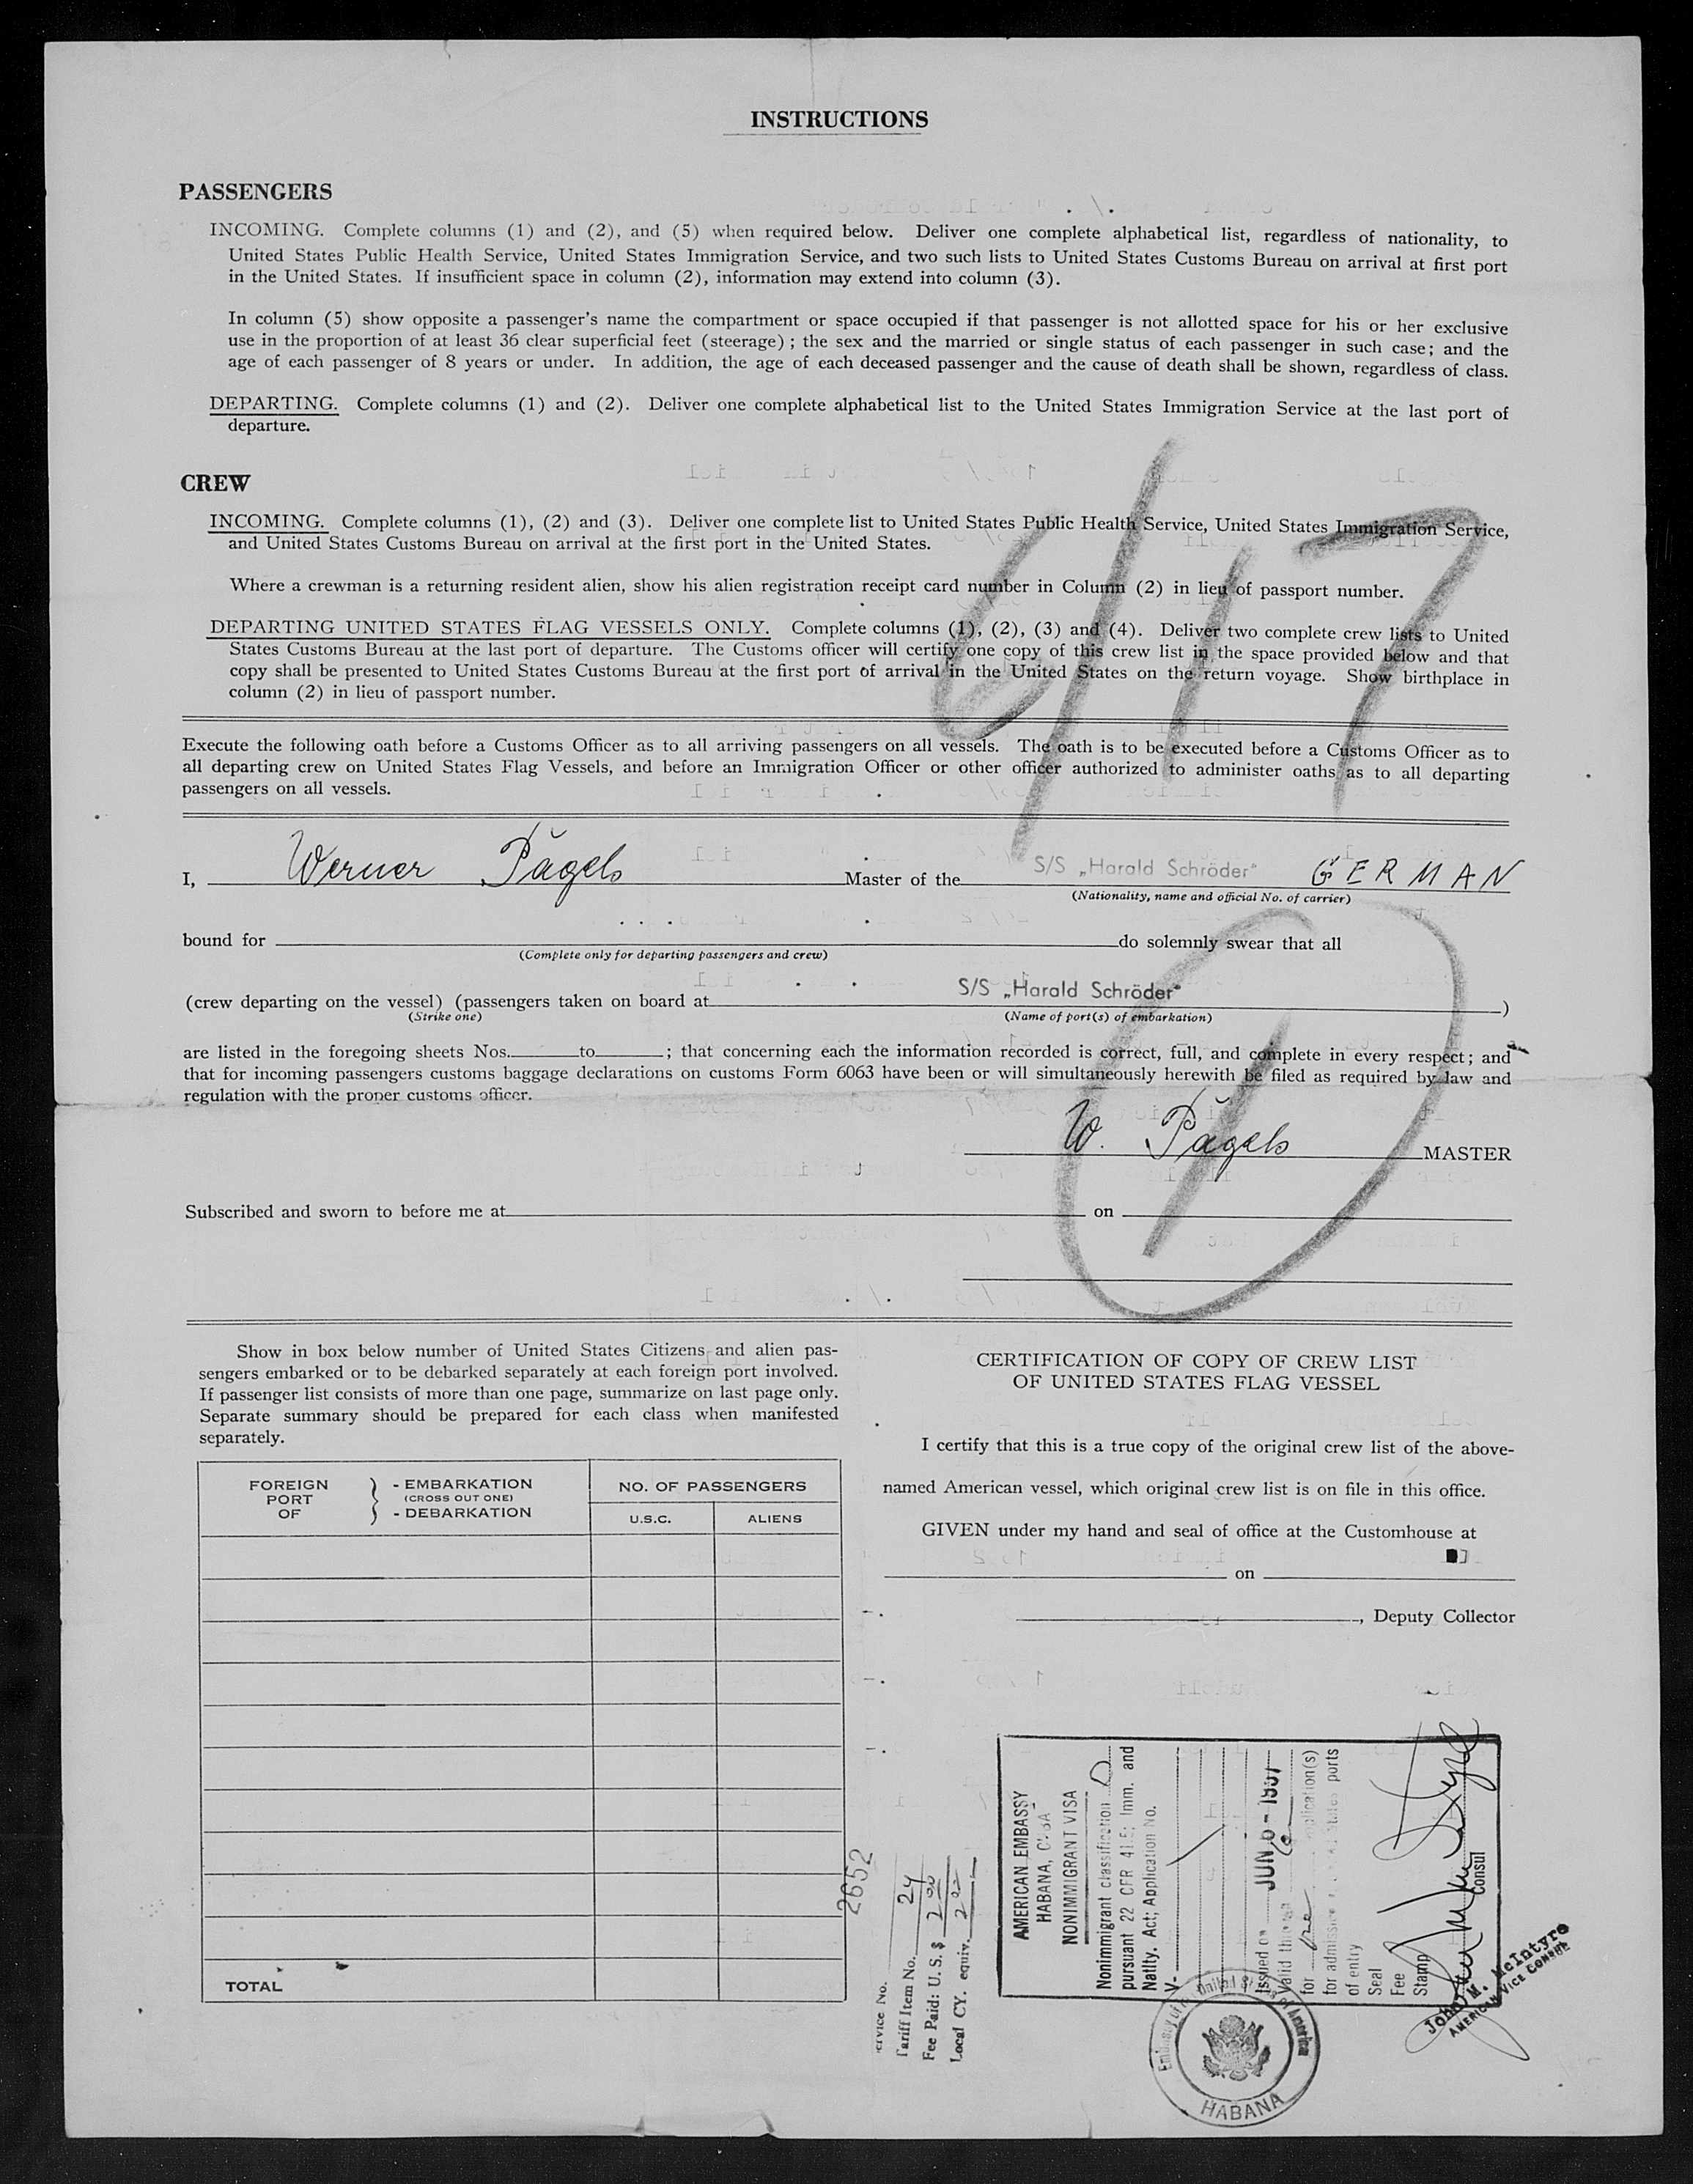 INSTRUCTIONS
PASSENGERS
INCOMING. Complete columns (1) and (2), and (5) when required below. Deliver one complete alphabetical list, regardless of nationality, to
United States Public Health Service, United States Immigration Service, and two such lists to United States Customs Bureau on arrival at first port
in the United States. If insufficient space in column (2), information may extend into column (3).
In column (5) show opposite a passenger's name the compartment or space occupied if that passenger is not allotted space for his or her exclusive
use in the proportion of at least 36 clear superficial feet (steerage); the sex and the married or single status of each passenger in such case; and the
age of each passenger of 8 years or under. In addition, the age of each deceased passenger and the cause of death shall be shown, regardless of class.
DEPARTING. Complete columns (1) and (2). Deliver one complete alphabetical list to the United States Immigration Service at the last port of
departure.
CREW
INCOMING. Complete columns (1), (2) and (3). Deliver one complete list to United States Public Health Service, United States Immigration Service,
and United States Customs Bureau on arrival at the first port in the United States.
Where a crewman is a returning resident alien, show his alien registration receipt card number in Column (2) in lieu of passport number.
DEPARTING UNITED STATES FLAG VESSELS ONLY. Complete columns (1), (2), (3) and (4). Deliver two complete crew lists to United
States Customs Bureau at the last port of departure. The Customs officer will certify one copy of this crew list in the space provided below and that
copy shall be presented to United States Customs Bureau at the first port of arrival in the United States on the return voyage. Show birthplace in
column (2) in lieu of passport number.
Execute the following oath before a Customs Officer as to all arriving passengers on all vessels. The oath is to be executed before a Customs Officer as to
all departing crew on United States Flag Vessels, and before an Immigration Officer or other officer authorized to administer oaths as to all departing
passengers on all vessels.
I, Werner Pagels Master of the S/S „Harald Schröder" GERMAN
(Nationality, name and official No. of carrier)
bound for do solemnly swear that all
(Complete only for departing passengers and crew)
(crew departing on the vessel) (passengers taken on board at S/S „Harald Schröder" )
(Strike one) (Name of port(s) of embarkation)
are listed in the foregoing sheets Nos. to ; that concerning each the information recorded is correct, full, and complete in every respect; and
that for incoming passengers customs baggage declarations on customs Form 6063 have been or will simultaneously herewith be filed as required by law and
regulation with the proper customs officer.
W. Pagels MASTER
Subscribed and sworn to before me at on
Show in box below number of United States Citizens and alien pas-
sengers embarked or to be debarked separately at each foreign port involved.
If passenger list consists of more than one page, summarize on last page only.
Separate summary should be prepared for each class when manifested
separately.
FOREIGN PORT OF - EMBARKATION (CROSS OUT ONE) - DEBARKATION
NO. OF PASSENGERS
U.S.C. ALIENS
TOTAL
CERTIFICATION OF COPY OF CREW LIST
OF UNITED STATES FLAG VESSEL
I certify that this is a true copy of the original crew list of the above-
named American vessel, which original crew list is on file in this office.
GIVEN under my hand and seal of office at the Customhouse at
on
, Deputy Collector
2652
Service No.
Tariff Item No. 24
Fee Paid: U. S. $ 2.00
Local CY. equiv. 2.00
AMERICAN EMBASSY
HABANA, CUBA
NONIMMIGRANT VISA
Nonimmigrant classification D
pursuant 22 CFR 41.5; Imm. and
Natlty. Act; Application No.
V-
Issued on JUN 6 - 1957
Valid through
for one application(s)
for admission at United States ports
of entry
Seal
Fee
Stamp
Consul
John M. McIntyre
AMERICAN VICE CONSUL
Embassy of the United States of America
HABANA